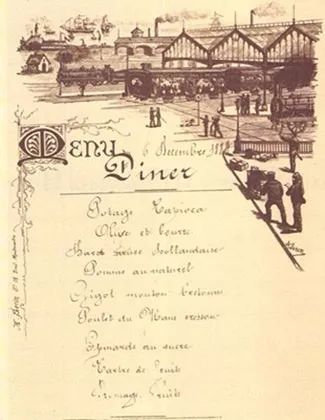 MENU
6 Decembre
Diner
Potage Tapioca
Olive et beurre
Sauce hollandaise
Pommes au naturel
Gigot mouton bretonne
Poulet du Mans cresson
Epinards au sucre
Tartes de fruits
Fromage, Fruits